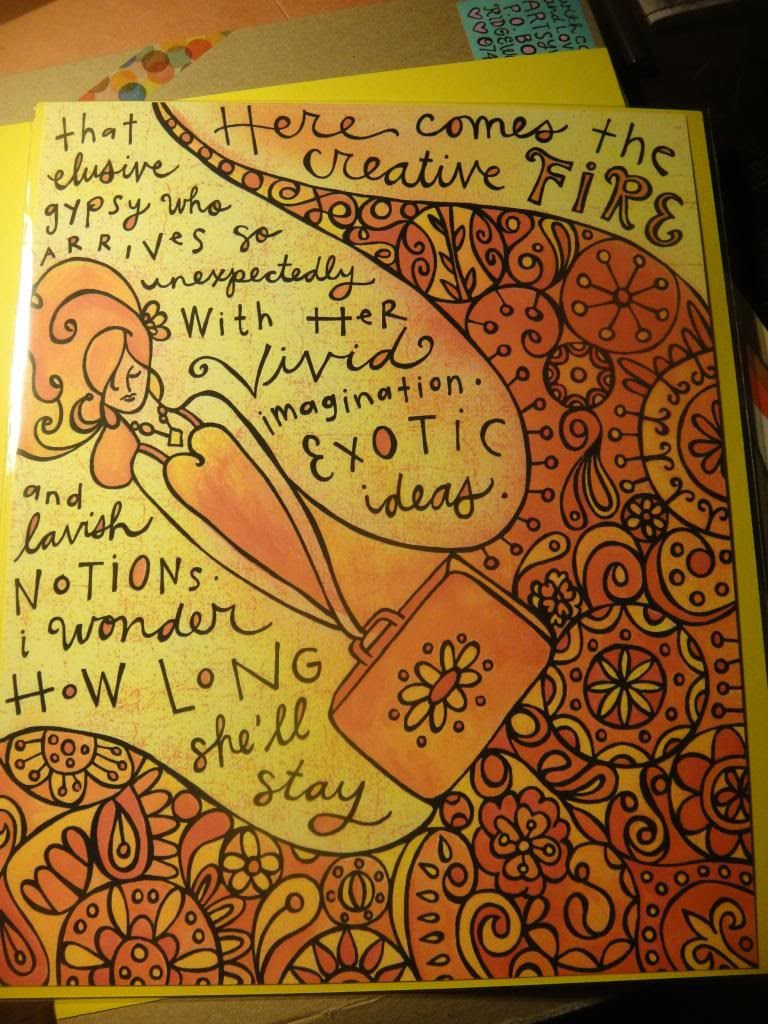 Here comes the
creative FIRE
that
elusive
gypsy who
ARRIVES so
unexpectedly
With HER
Vivid
imagination.
EXOTIC
ideas.
and
lavish
NOTIONS.
i wonder
HOW LONG
she'll
stay
ARTSY
P.O. BO
RIDGEW